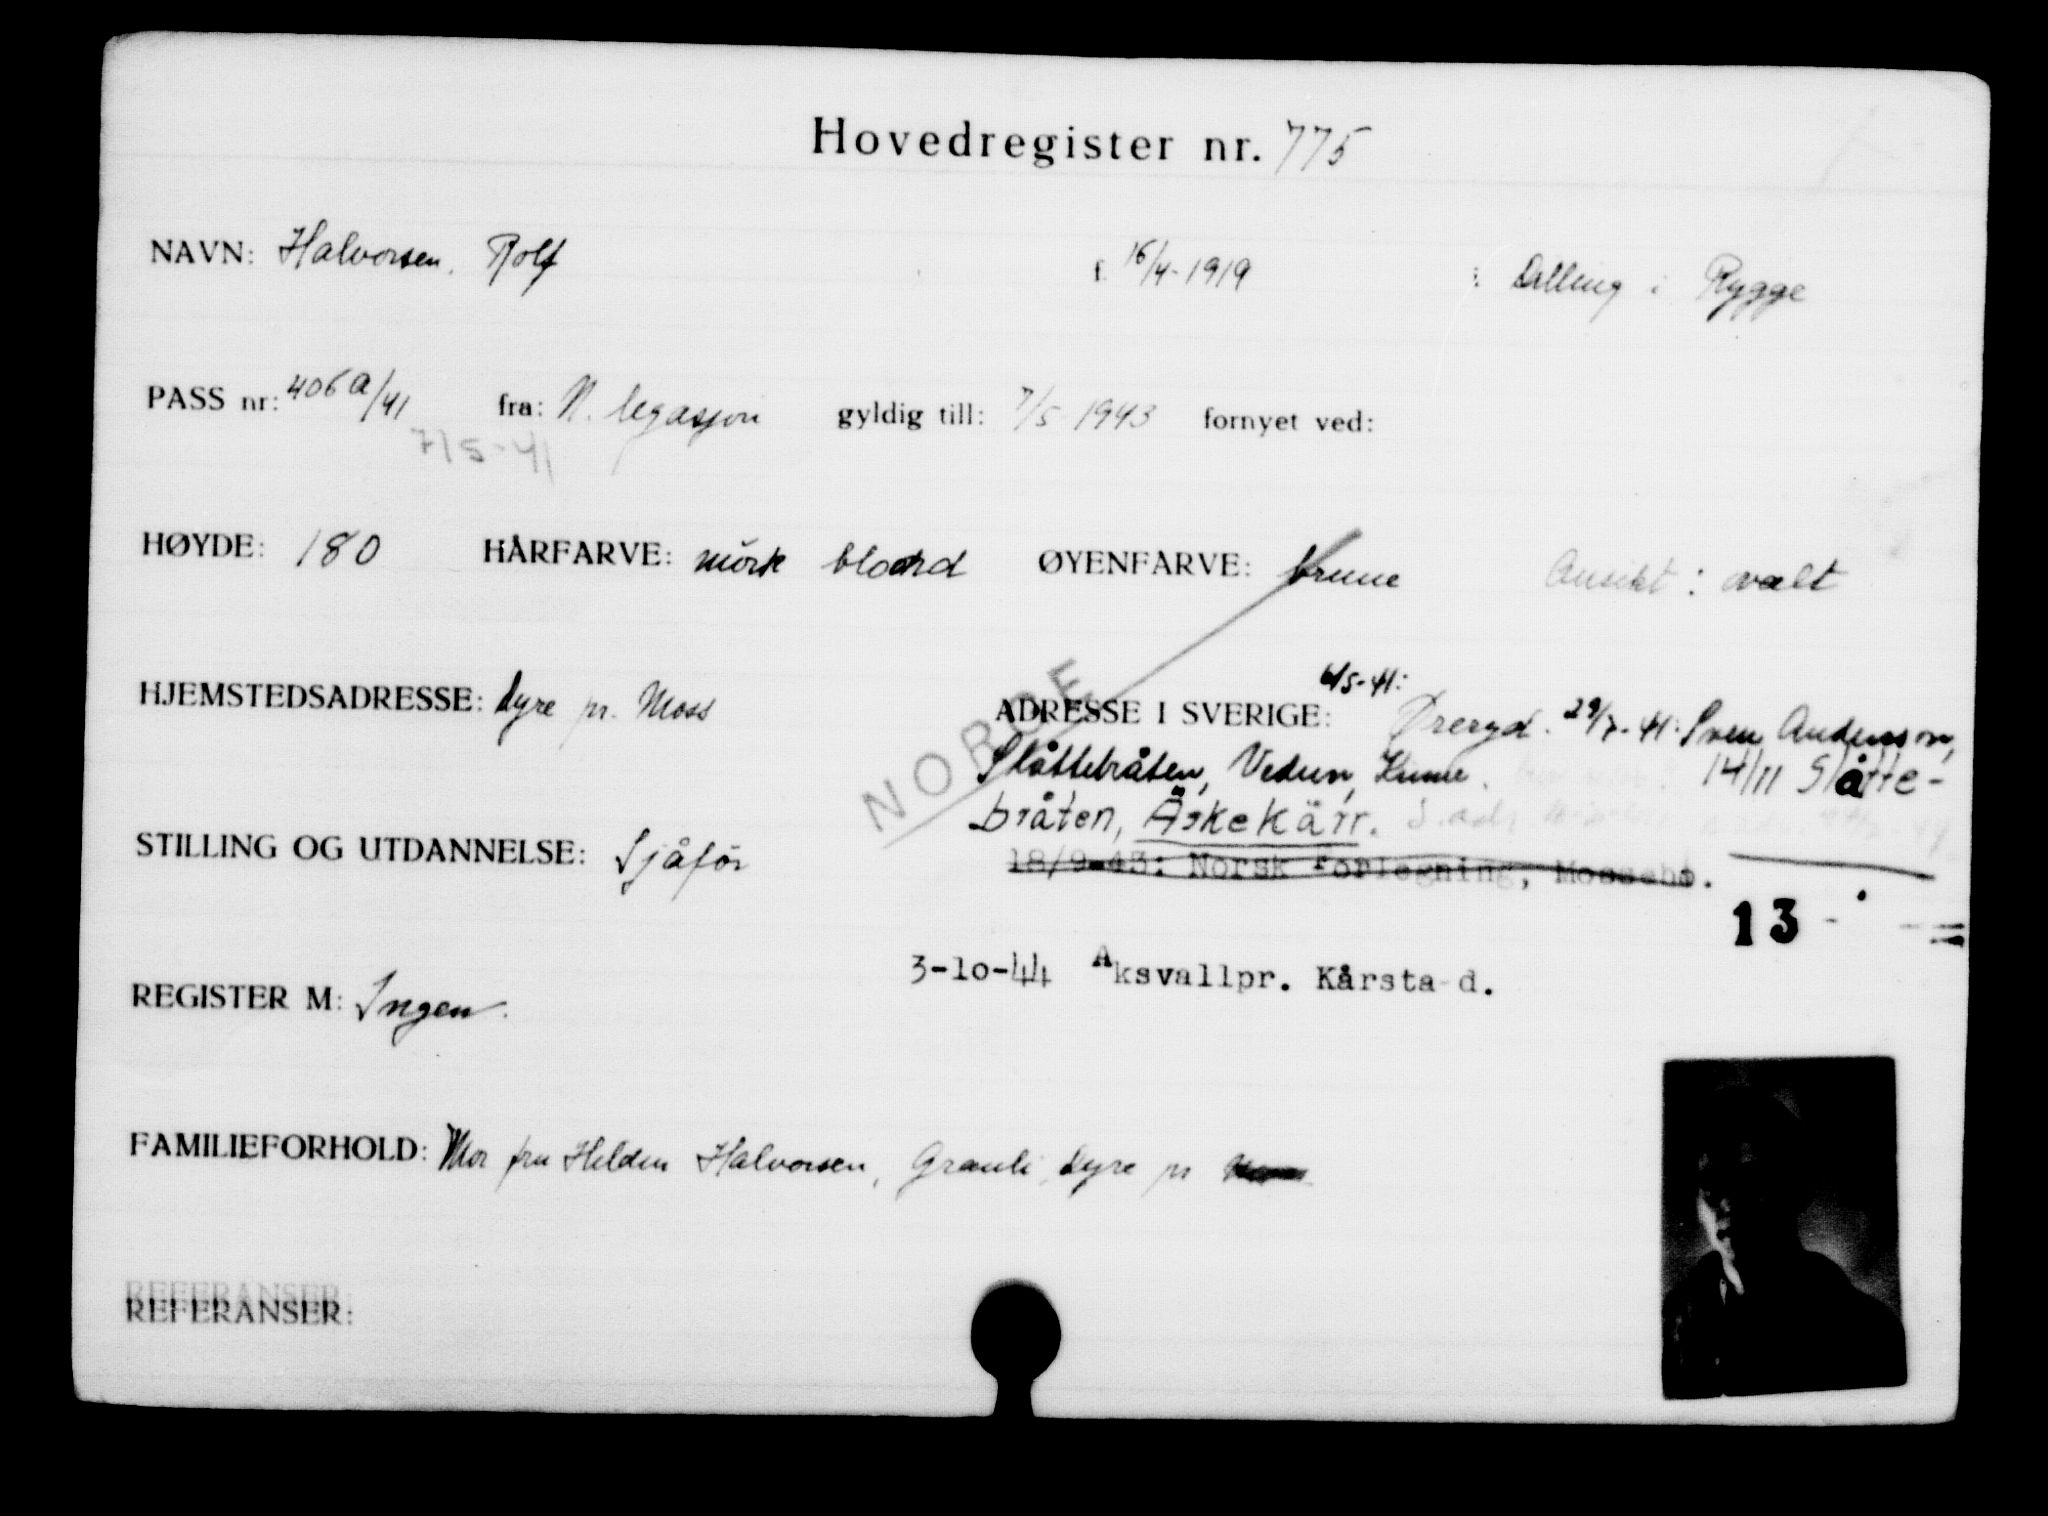 Hovedregister nr. 775
NAVN: Halvorsen, Rolf f. 16/4-1919 i Dilling i Rygge
PASS nr: 406a/41 fra: N. legasjon gyldig till: 7/5 1943 fornyet ved:
7/5-41
HØYDE: 180 HÅRFARVE: mörk blond ØYENFARVE: brune Ansikt: ovalt
HJEMSTEDSADRESSE: Dyre pr. Moss
NORGE
ADRESSE I SVERIGE: 6/5-41: Öreryd. 29/7-41: Sven Anderson,
Slåttebråten, Vedum, Kinne. 14/11 Slåtte-
bråten, Äskekärr.
STILLING OG UTDANNELSE: Sjåfør
18/9-43: Norsk Forlegning, Mossebo.
13
3-10-44 Aksvallpr. Kårsta d.
REGISTER M: Ingen.
FAMILIEFORHOLD: Mor fru Helden Halvorsen, Granli, Dyre pr Moss
REFERANSER:
REFERANSER: